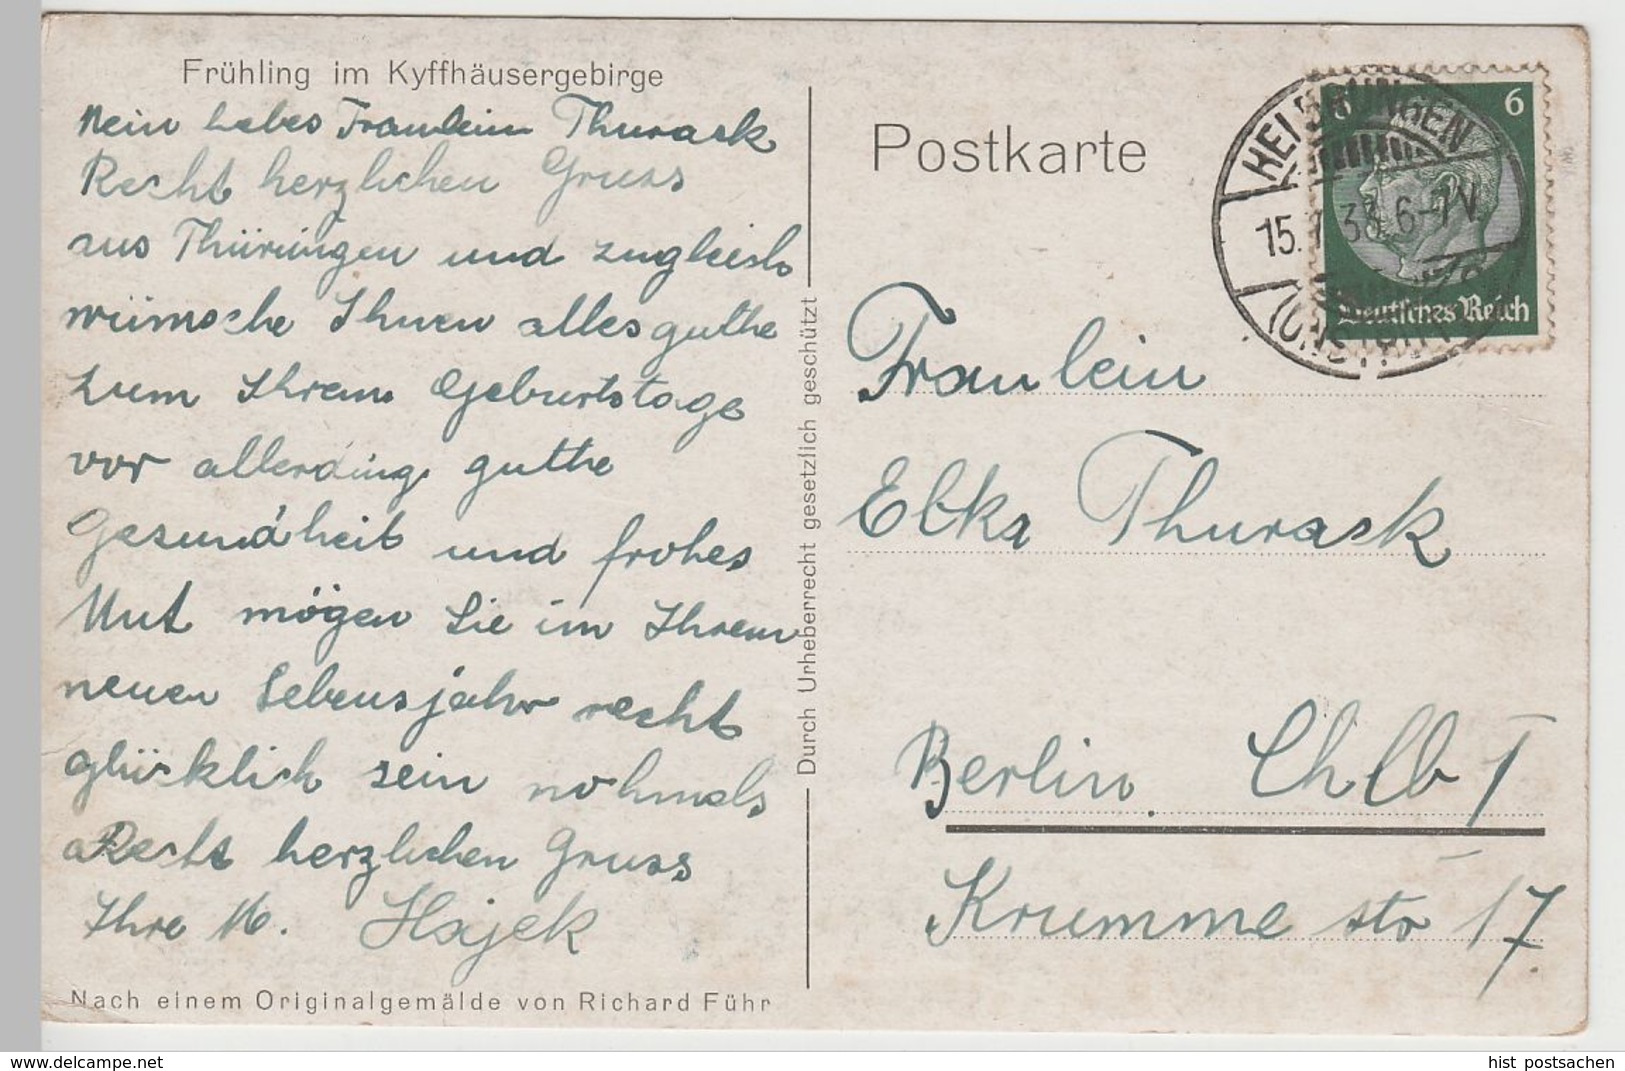 Frühling im Kyffhäusergebirge
Mein liebes Fraulein Thurask
Recht herzlichen Gruss
aus Thüringen und zugleich
wünsche Ihnen alles guthe
zum Ihrem Geburtstage
vor allerding guthe
Gesundheit und frohes
Mut mögen Sie im Ihrem
neuen Lebensjahr recht
glücklich sein nohmals
Recht herzlichen Gruss
Ihre M. Hajek
Nach einem Originalgemälde von Richard Führ
Durch Urheberrecht gesetzlich geschützt
Postkarte
HELDRUNGEN
15. 33. 6-7 V.
(UNSTRUT)
6 6
Deutsches Reich
Fraulein
Elka Thurask
Berlin. Chlb 1
Krumme str 17
www.delcampe.net
hist_postsachen